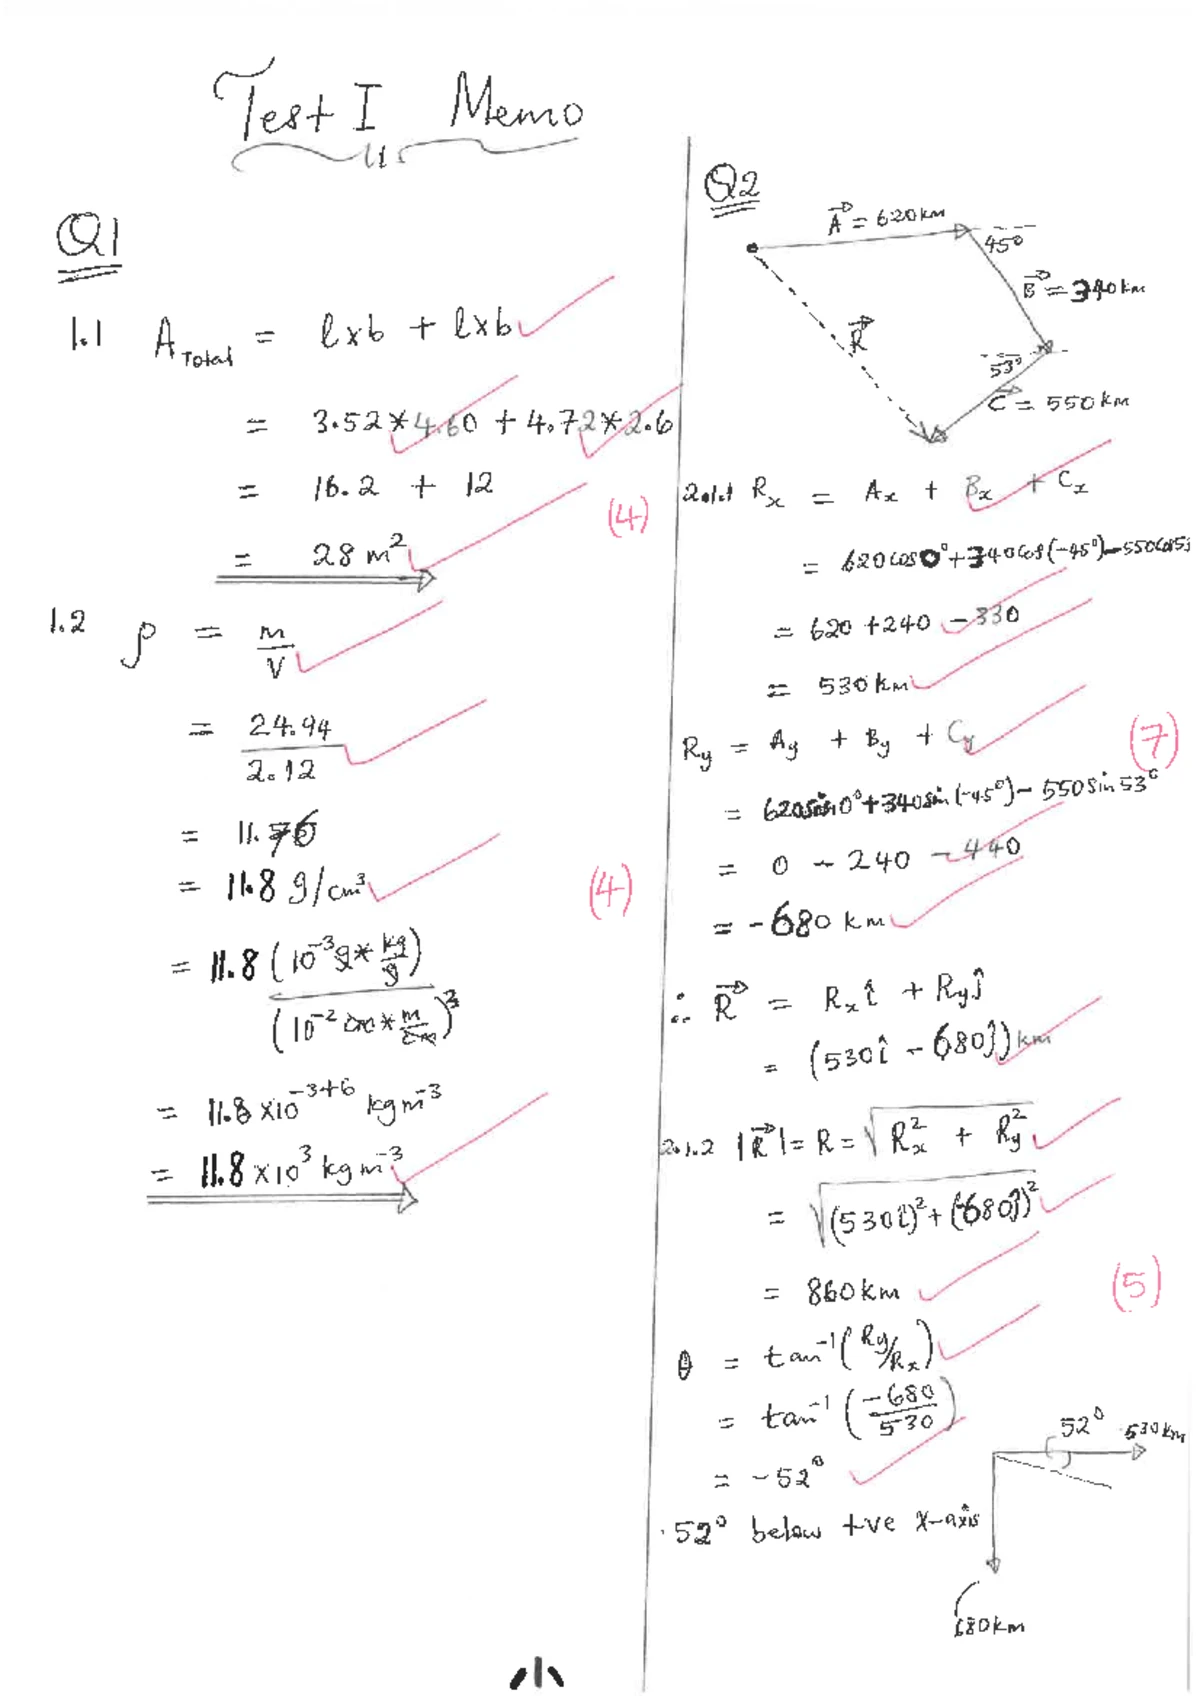 Test I Memo
Q1
1.1 A Total = l x b + l x b
= 3.52 * 4.60 + 4.72 * 2.6
= 16.2 + 12
= 28 m²
(4)
1.2 ρ = m/V
= 24.94/2.12
= 11.76
= 11.8 g/cm³
(4)
= 11.8 (10⁻³ g * kg/g)
(10⁻² cm * m/cm)³
= 11.8 x 10⁻³⁺⁶ kg m⁻³
= 11.8 x 10³ kg m⁻³
Q2
A⃗ = 620 km
45°
B⃗ = 340 km
R⃗
53°
C⃗ = 550 km
2.1.1 Rx = Ax + Bx + Cx
= 620 cos 0° + 340 cos(-45°) - 550 cos 53
= 620 + 240 - 330
= 530 km
Ry = Ay + By + Cy
(7)
= 620 sin 0° + 340 sin(-45°) - 550 sin 53°
= 0 - 240 - 440
= -680 km
∴ R⃗ = Rx î + Ry ĵ
= (530 î - 680 ĵ) km
2.1.2 |R⃗| = R = √(Rx² + Ry²)
= √((530 î)² + (-680 ĵ)²)
= 860 km
(5)
θ = tan⁻¹(Ry/Rx)
= tan⁻¹(-680/530)
= -52°
52° 530 km
52° below +ve x-axis
680 km